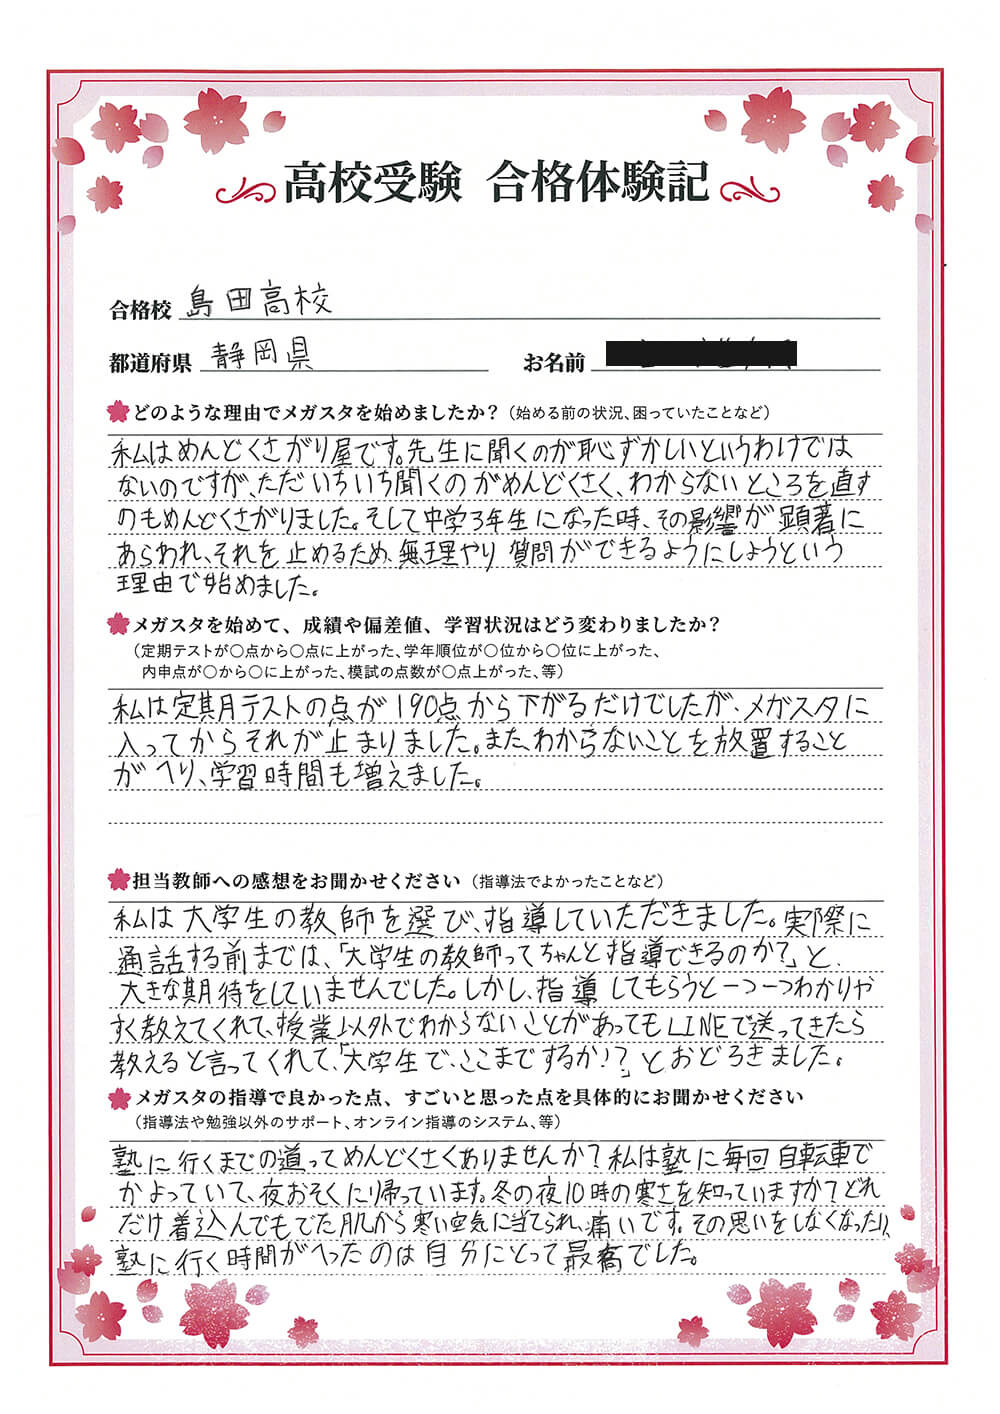 高校受験 合格体験記
合格校 島田高校
都道府県 静岡県 お名前
どのような理由でメガスタを始めましたか？（始める前の状況、困っていたことなど）
私はめんどくさがり屋です。先生に聞くのが恥ずかしいというわけでは
ないのですが、ただいちいち聞くのがめんどくさく、わからないところを直す
のもめんどくさがりました。そして中学3年生になった時、その影響が顕著に
あらわれ、それを止めるため、無理やり質問ができるようにしようという
理由で始めました。
メガスタを始めて、成績や偏差値、学習状況はどう変わりましたか？
（定期テストが〇点から〇点に上がった、学年順位が〇位から〇位に上がった、
内申点が〇から〇に上がった、模試の点数が〇点上がった、等）
私は定期テストの点が190点から下がるだけでしたが、メガスタに
入ってからそれが止まりました。また、わからないことを放置すること
がへり、学習時間も増えました。
担当教師への感想をお聞かせください（指導法でよかったことなど）
私は大学生の教師を選び、指導していただきました。実際に
通話する前までは、「大学生の教師ってちゃんと指導できるのか？」と、
大きな期待をしていませんでした。しかし、指導してもらうと一つ一つわかりや
すく教えてくれて、授業以外でわからないことがあってもLINEで送ってきたら
教えると言ってくれて、「大学生で、ここまでするか！？」とおどろきました。
メガスタの指導で良かった点、すごいと思った点を具体的にお聞かせください
（指導法や勉強以外のサポート、オンライン指導のシステム、等）
塾に行くまでの道ってめんどくさくありませんか？私は塾に毎回自転車で
かよっていて、夜おそくに帰っています。冬の夜10時の寒さを知っていますか？どれ
だけ着込んでもでた肌から寒い空気に当てられ、痛いです。その思いをしなくなったり、
塾に行く時間がへったのは自分にとって最高でした。